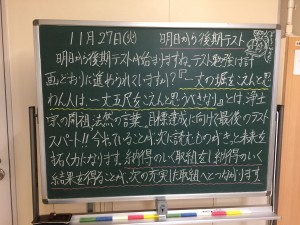 11月27日(火) 明日から後期テスト
明日から後期テストが始まりますね。テスト勉強は計
画どおりに進められていますか?『一丈の堀をこえんと思
わん人は、一丈五尺をこえんと思うべきなり』とは、浄土
宗の開祖、法然の言葉。目標達成に向けて最後のテスト
スパート!!今やっていることが、次に読むものが、きっと未来を
拓く力になります。納得のいく取組をし納得のいく
結果を得ることが、次の充実した取組へとつながります。